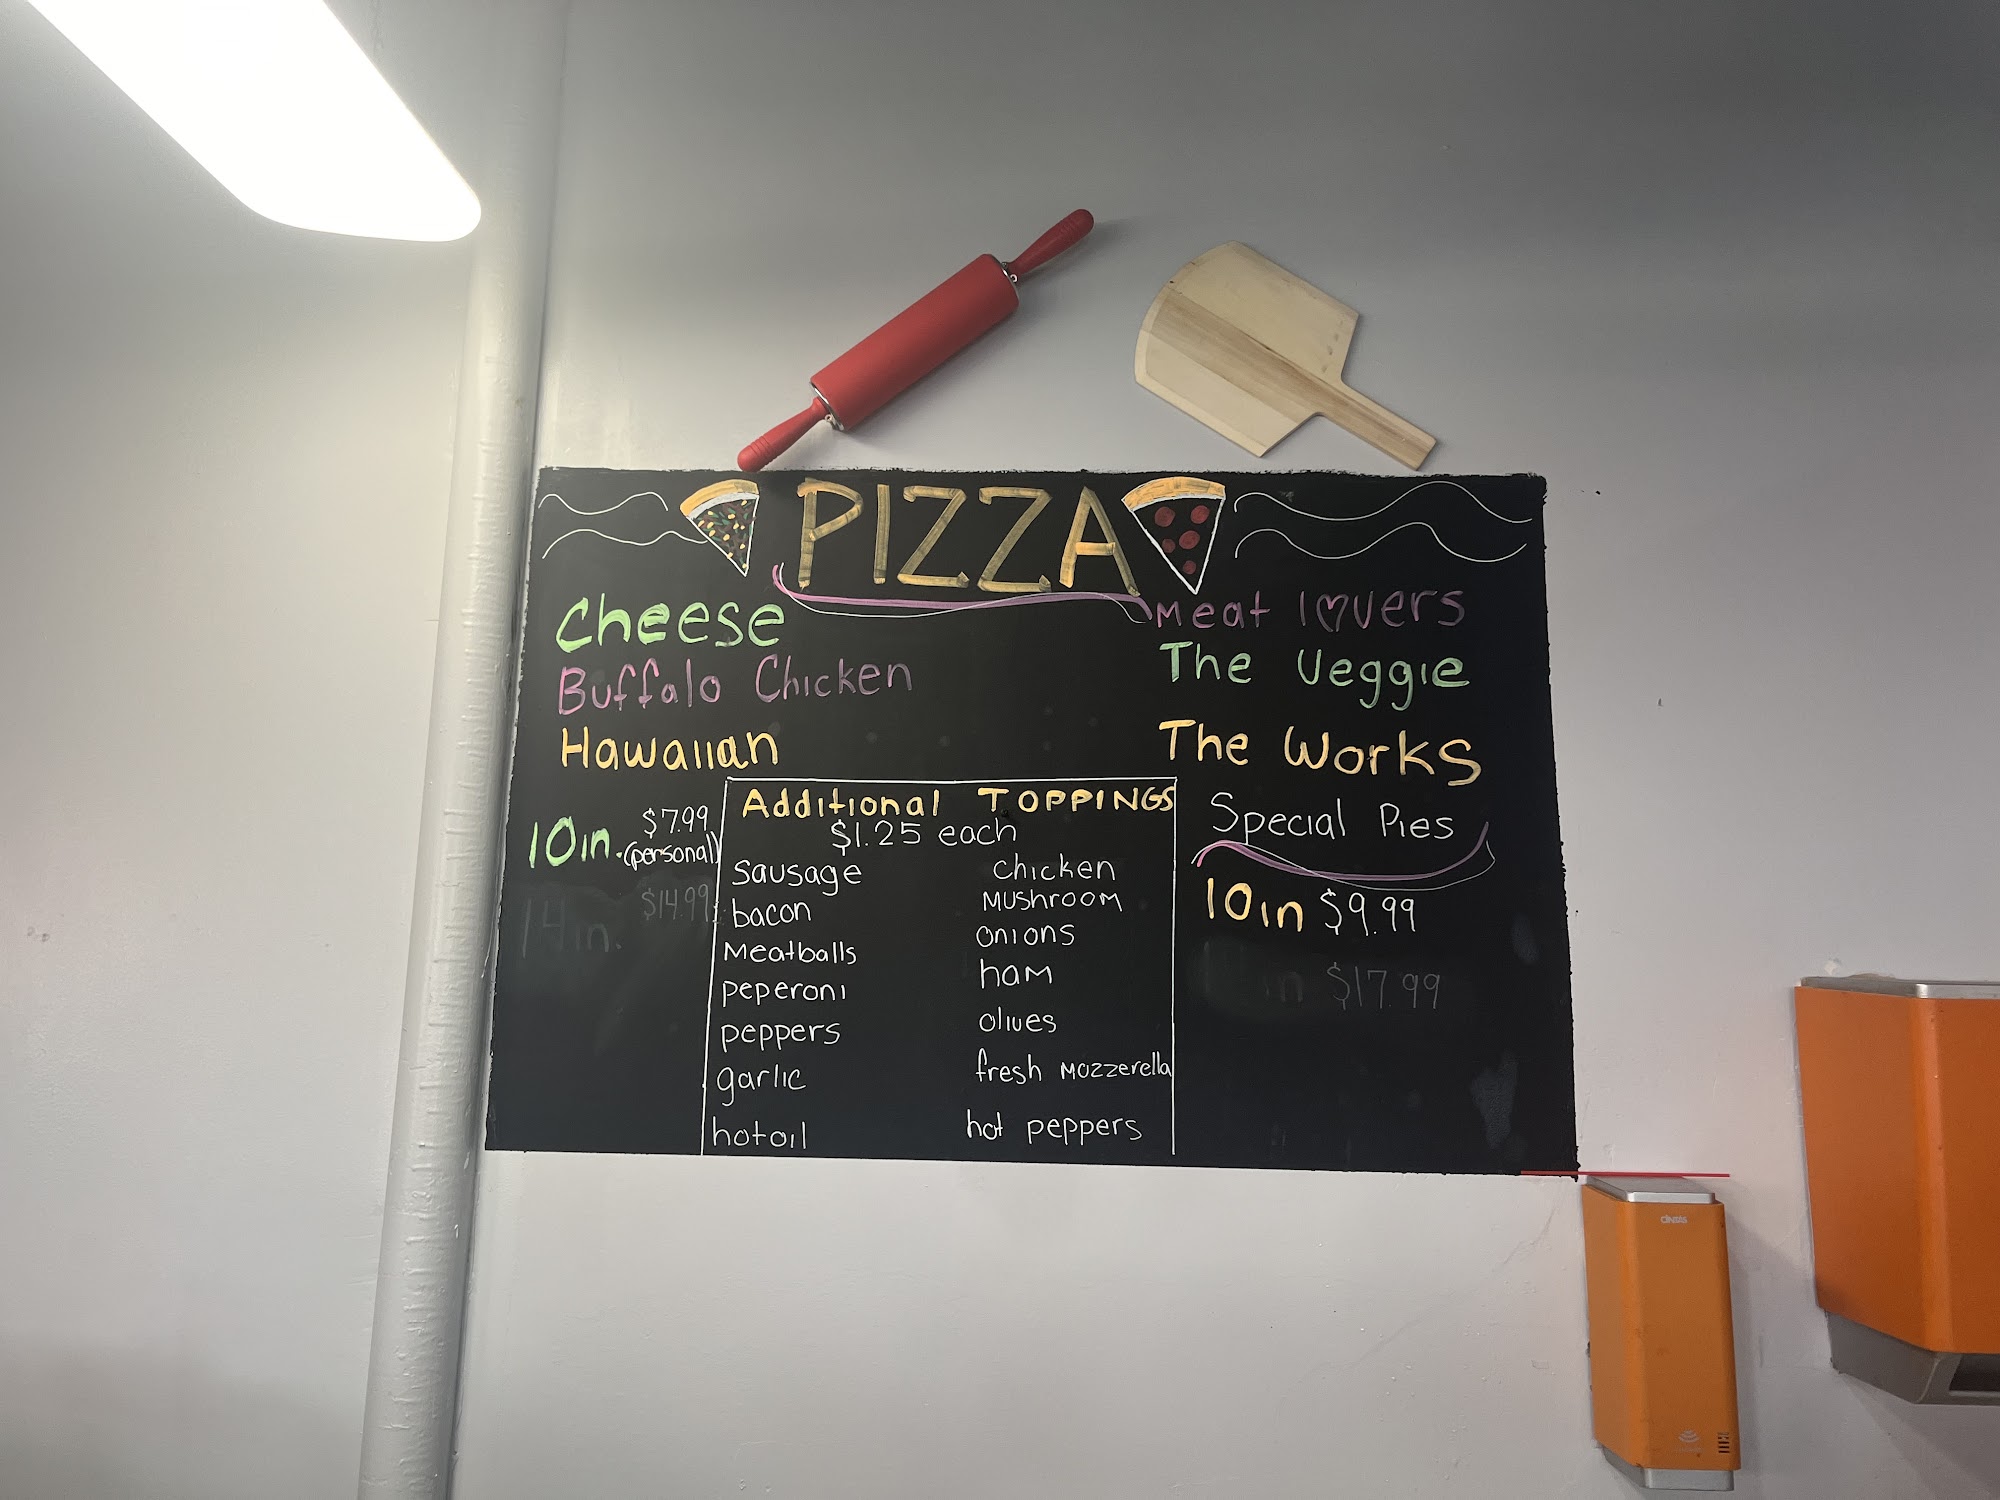 PIZZA
Cheese
Buffalo Chicken
Hawaiian
Meat lovers
The Veggie
The Works
10in. $7.99
(personal)
14in. $14.99
Additional TOPPINGS
$1.25 each
sausage
bacon
Meatballs
peperoni
peppers
garlic
hot oil
Chicken
MUSHROOM
onions
ham
olives
fresh Mozzerella
hot peppers
Special Pies
10in $9.99
in $17.99
CINTAS